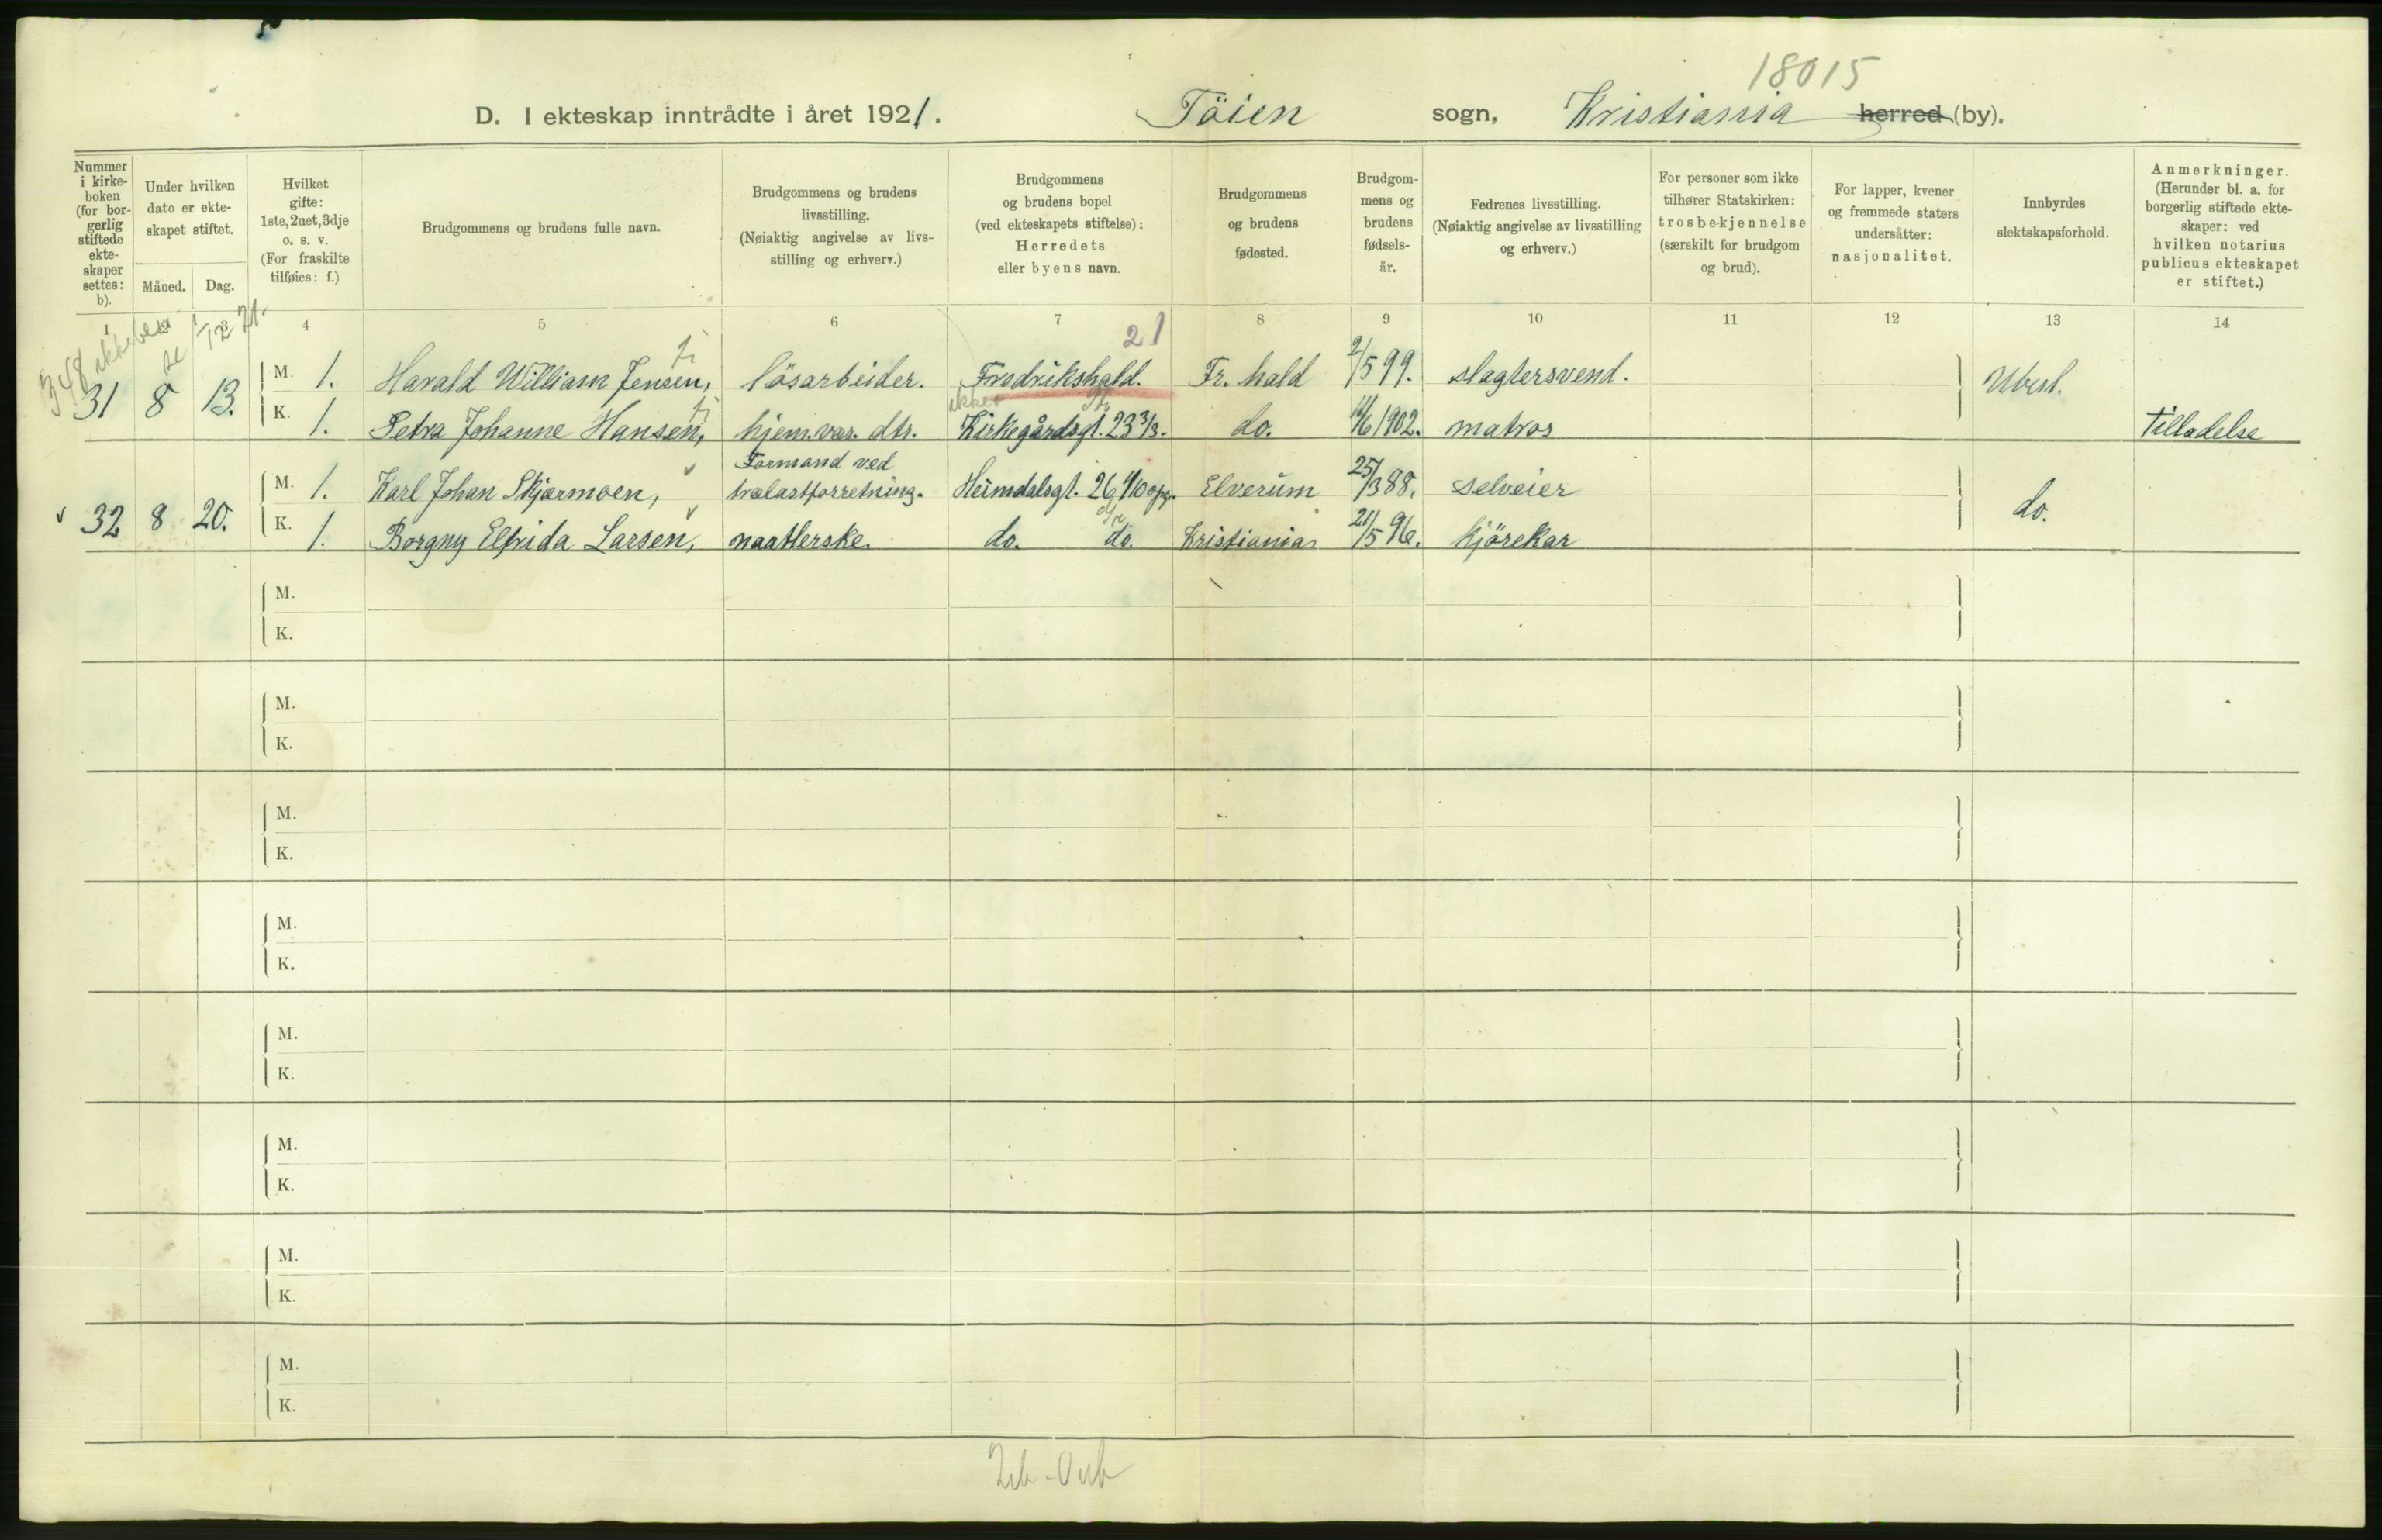 18015
D. I ekteskap inntrådte i året 1921. Töien sogn, Kristiania herred (by).
Nummer i kirkeboken (for borgerlig stiftede ekteskaper settes: b).
Under hvilken dato er ekteskapet stiftet.
Måned. Dag.
Hvilket gifte: 1ste, 2net, 3dje o. s. v. (For fraskilte tilføies: f.)
Brudgommens og brudens fulle navn.
Brudgommens og brudens livsstilling. (Nøiaktig angivelse av livsstilling og erhverv.)
Brudgommens og brudens bopel (ved ekteskapets stiftelse): Herredets eller byens navn.
Brudgommens og brudens fødested.
Brudgommens og brudens fødselsår.
Fedrenes livsstilling. (Nøiaktig angivelse av livsstilling og erhverv.)
For personer som ikke tilhører Statskirken: trosbekjennelse (særskilt for brudgom og brud).
For lapper, kvener og fremmede staters undersåtter: nasjonalitet.
Innbyrdes slektskapsforhold.
Anmerkninger. (Herunder bl. a. for borgerlig stiftede ekteskaper: ved hvilken notarius publicus ekteskapet er stiftet.)
1 2 3 4 5 6 7 8 9 10 11 12 13 14
348
21
31 8 13. M. 1. Harald William Jensen, lösarbeider. Fredrikshald. Fr. hald 2/5 99. slagtersvend. Ubesl.
K. 1. Petra Johanne Hansen, hjem.vær. dtr. Kirkegårdsgt. 23 3/3. do. 1902. matros Tilladelse
32 8 20. M. 1. Karl Johan Skjærmoen, Formand ved trælastforretning. Heimdalsgt. 26 Elverum 25/3 88. selveier do.
K. 1. Borgny Elfrida Larsen, naatlerske. do. do. Kristiania 21/5 96. kjörekar
M.
K.
M.
K.
M.
K.
M.
K.
M.
K.
M.
K.
M.
K.
M.
K.